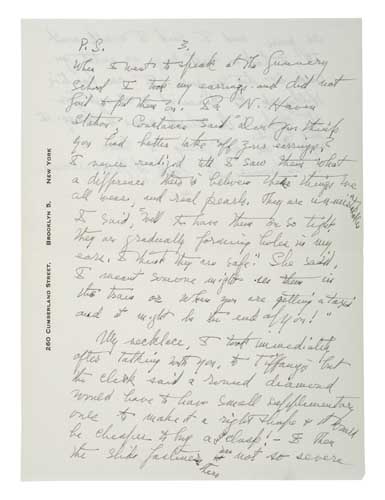 P.S. 3.
When I went to speak at the Gunnery
School I took my earrings and did not
fail to put them in. In N. Haven
Station, Constance said "don't you think
you had better take off your earrings."
I never realized till I saw them what
a difference there is between these things we
all wear, and real pearls. They are
I said, "well to have them on so tight
they are gradually forming holes in my
ears. I think they are safe". She said,
I meant someone might see them in
the train or when you are getting a taxi
and it might be the end of you!"
My necklace, I took immediately
after talking with you, to Tiffany's but
the clerk said a round diamond
would have to have small supplementary
ones to make it a right shape & it would
be cheaper to buy a clasp! – I then
the slide fastener not so severe
260 CUMBERLAND STREET, BROOKLYN 5, NEW YORK